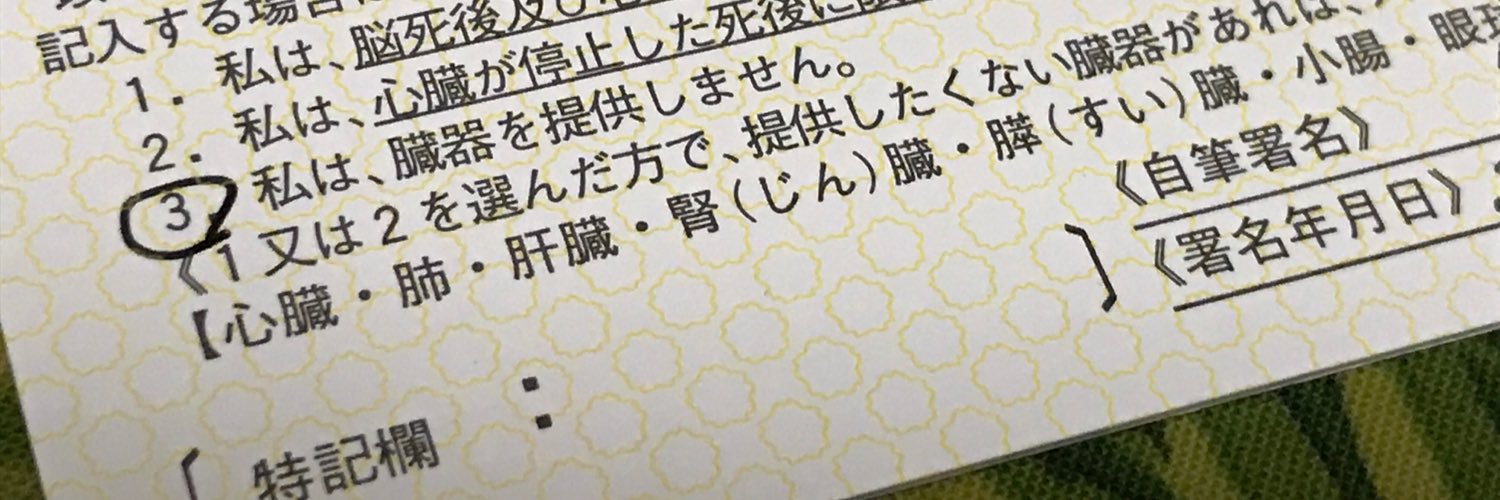 記入する場合は
1. 私は、脳死後及び
2. 私は、心臓が停止した死後に
3. 私は、臓器を提供しません。
《1 又は 2 を選んだ方で、提供したくない臓器があれば、
【心臓・肺・肝臓・腎(じん)臓・膵(すい)臓・小腸・眼球
〔特記欄: 〕
《自筆署名》
《署名年月日》: